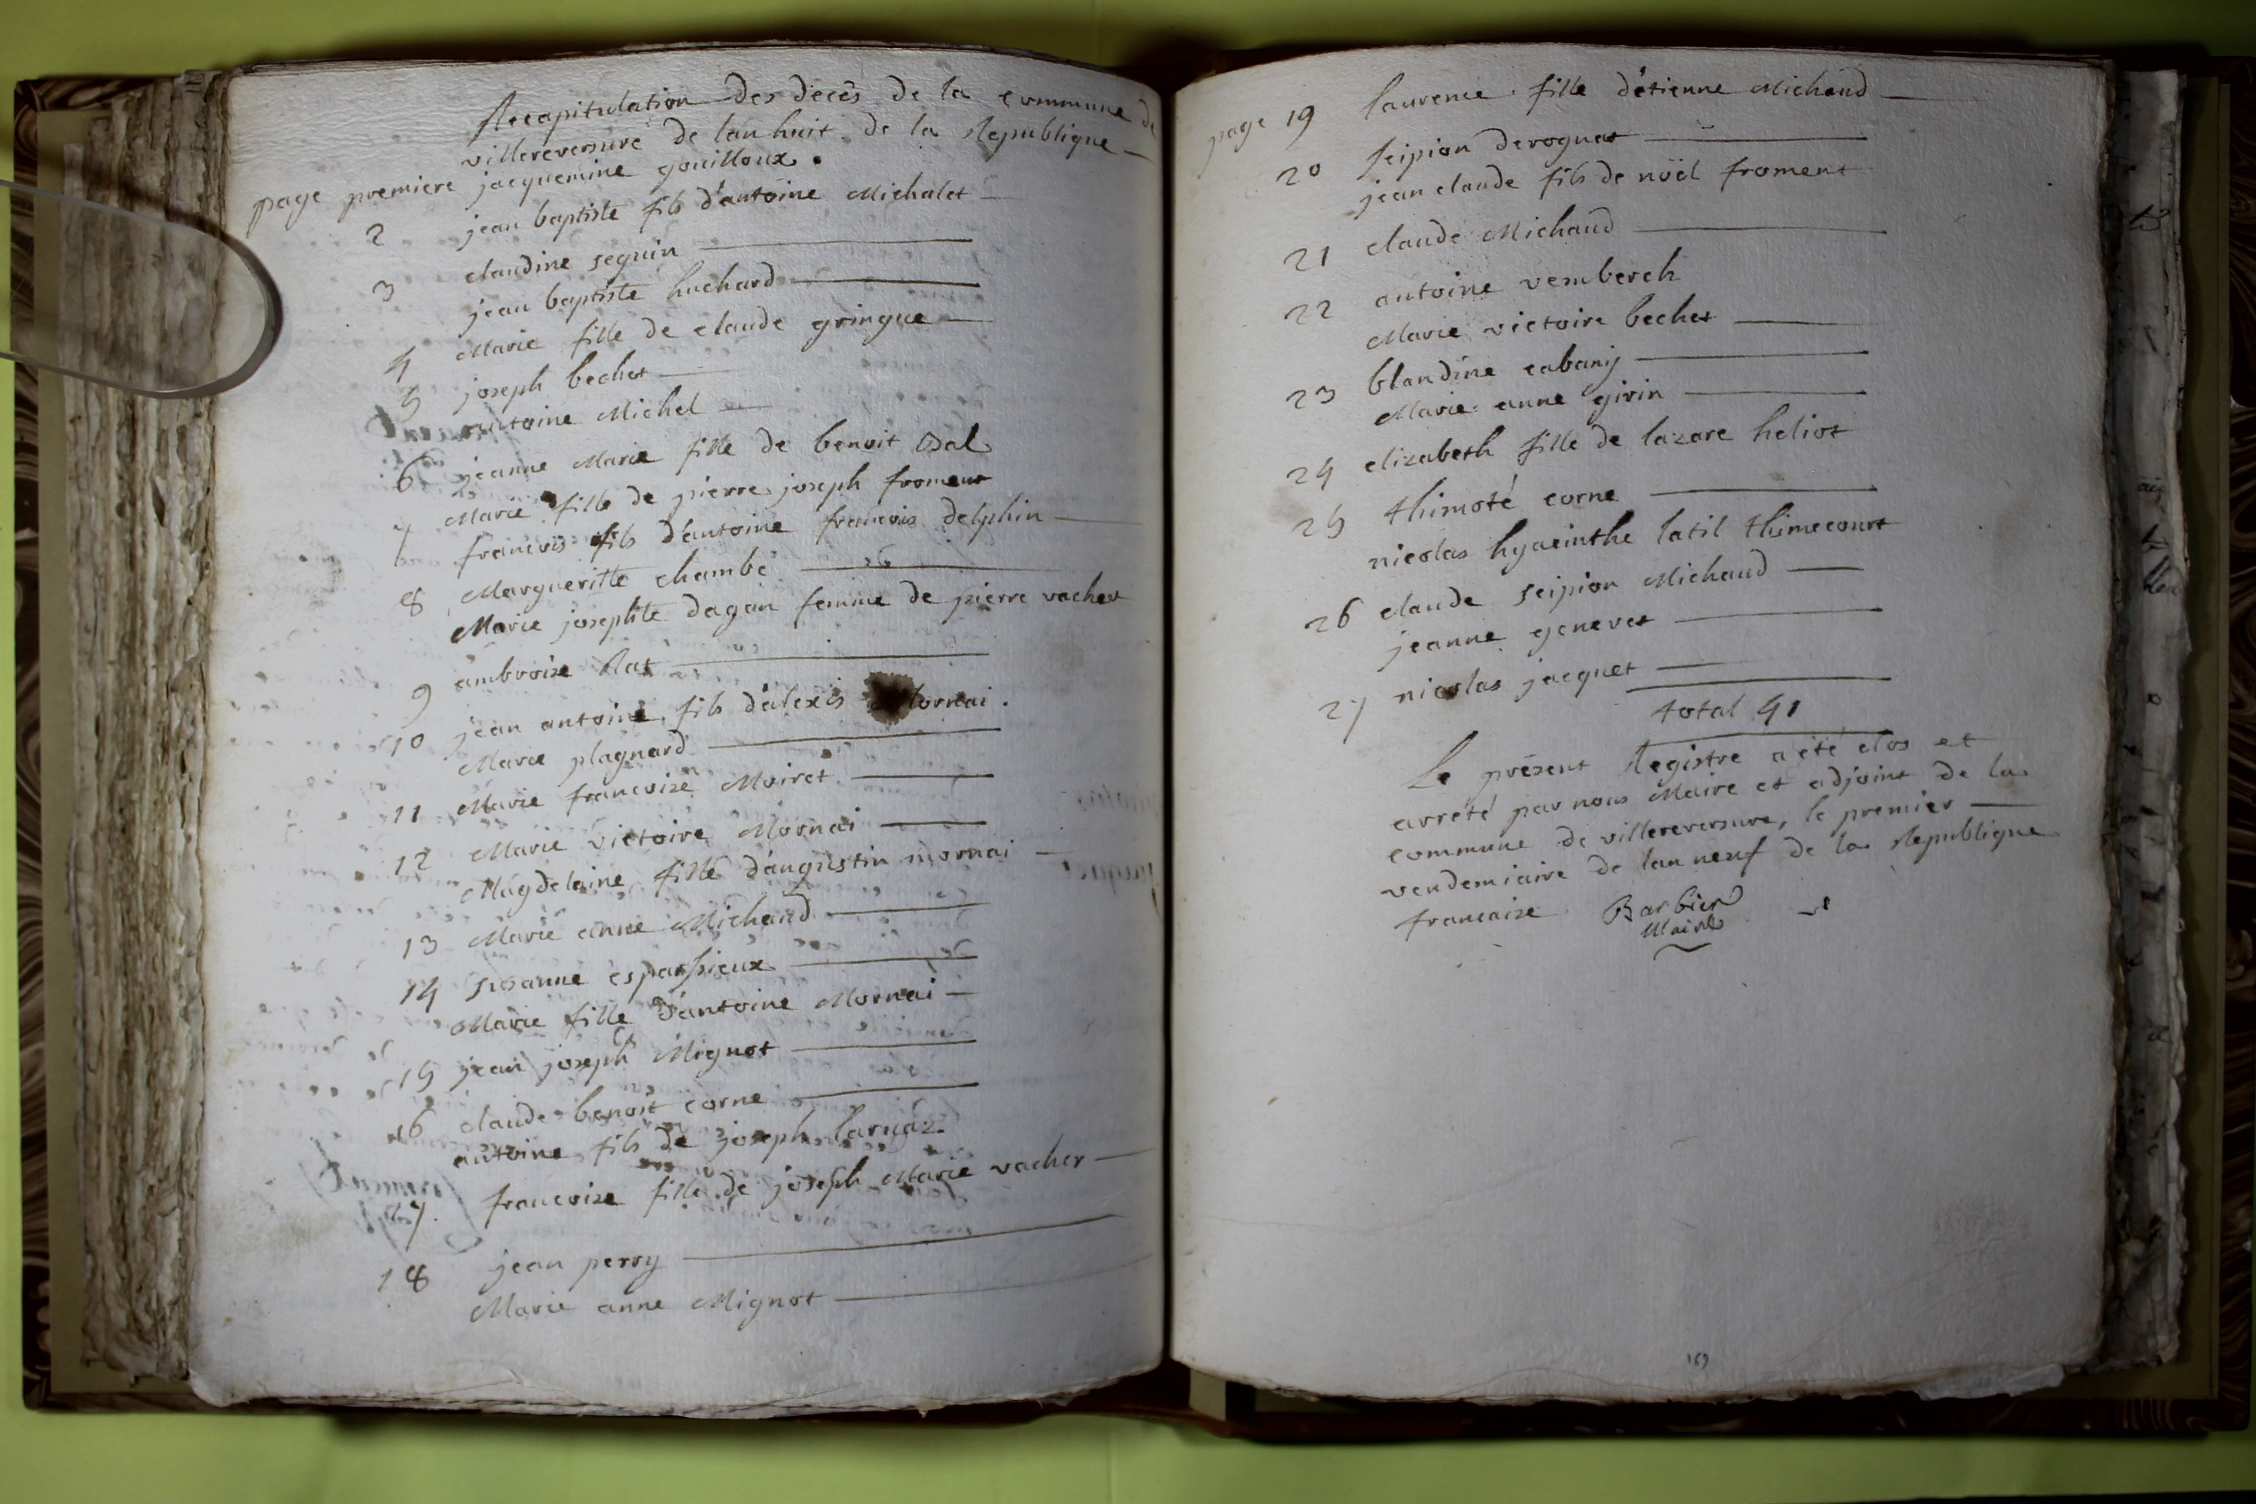 Recapitulation des decès de la commune de
villereversure de l'an huit de la Republique
page premiere jacquemine gouilloux.
2 jean baptiste fils d'antoine Michalet
claudine seguin
3 jean baptiste huchard
Marie fille de claude gringue
4 joseph bechet
5 antoine Michel
6 jeanne Marie fille de benoit
Marie fille de pierre joseph froment
7 francois fils d'antoine francois delphin
8 Margueritte chambe
Marie josephte dagan femme de pierre vacher
9 ambroise Rat
10 jean antoine fils d'alexis
Marie plagnard
11 Marie francoise Moiret
12 Marie victoire Mornai
Magdelaine fille d'augustin mornai
13 Marie anne Michaud
14 susanne esparsieux
Marie fille d'antoine Mornai
15 jean joseph Mignot
16 claude benoit corne
antoine fils de joseph larnaz
17. francoise fille de joseph Marie vacher
18 jean perry
Marie anne Mignot
page 19 laurence fille d'étienne Michaud
20 scipion derognat
jean claude fils de noël froment
21 claude Michaud
22 antoine vemberck
Marie victoire bechet
23 blandine cabanij
Marie anne girin
24 elizabeth fille de lazare heliot
25 thimoté corne
nicolas hyacinthe latil thimecourt
26 claude scipion Michaud
jeanne genevet
27 nicolas jacquet
total 41
Le présent Registre a été clos et
arrété par nous Maire et adjoint de la
commune de villereversure, le premier
vendemiaire de l'an neuf de la Republique
francaise Barbier
Maire
169